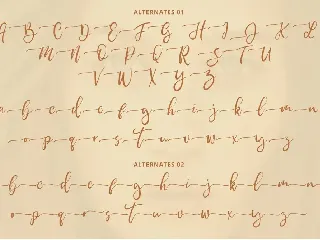 ALTERNATES 01
A B C D E F G H I J K L
M N O P Q R S T U
V W X Y Z
a b c d e f g h i j k l m n
o p q r s t u v w x y z
ALTERNATES 02
b c d e f g h i j k l m n
o p q r s t u v w x y z